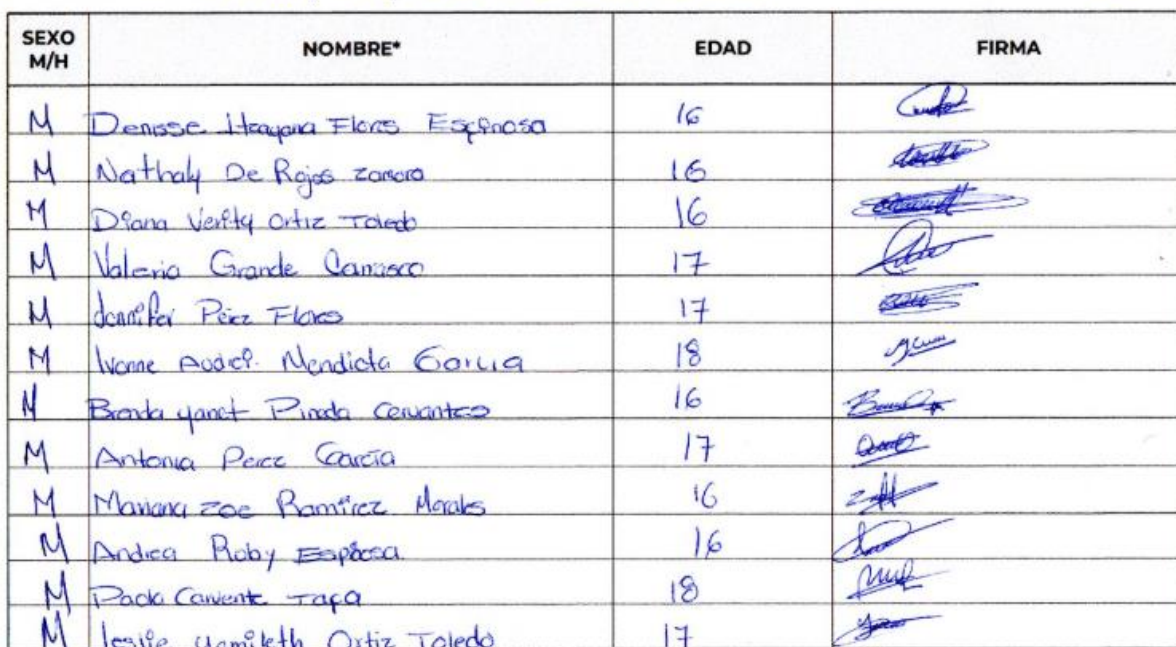 SEXO M/H NOMBRE* EDAD FIRMA
M Denisse Itzayana Flores Espinosa 16
M Nathaly De Rojas Zamora 16
M Diana Verity Ortiz Toledo 16
M Valeria Grande Carrasco 17
M Jennifer Pérez Flores 17
M Ivonne Mendieta Garcia 18
M Brenda yanet Pineda Cervantes 16
M Antonia Perez García 17
M Mariana zoe Ramírez Morales 16
M Andrea Roby Espinosa 16
M Paola Carvente Tapia 18
M leslie yamileth Ortiz Toledo 17